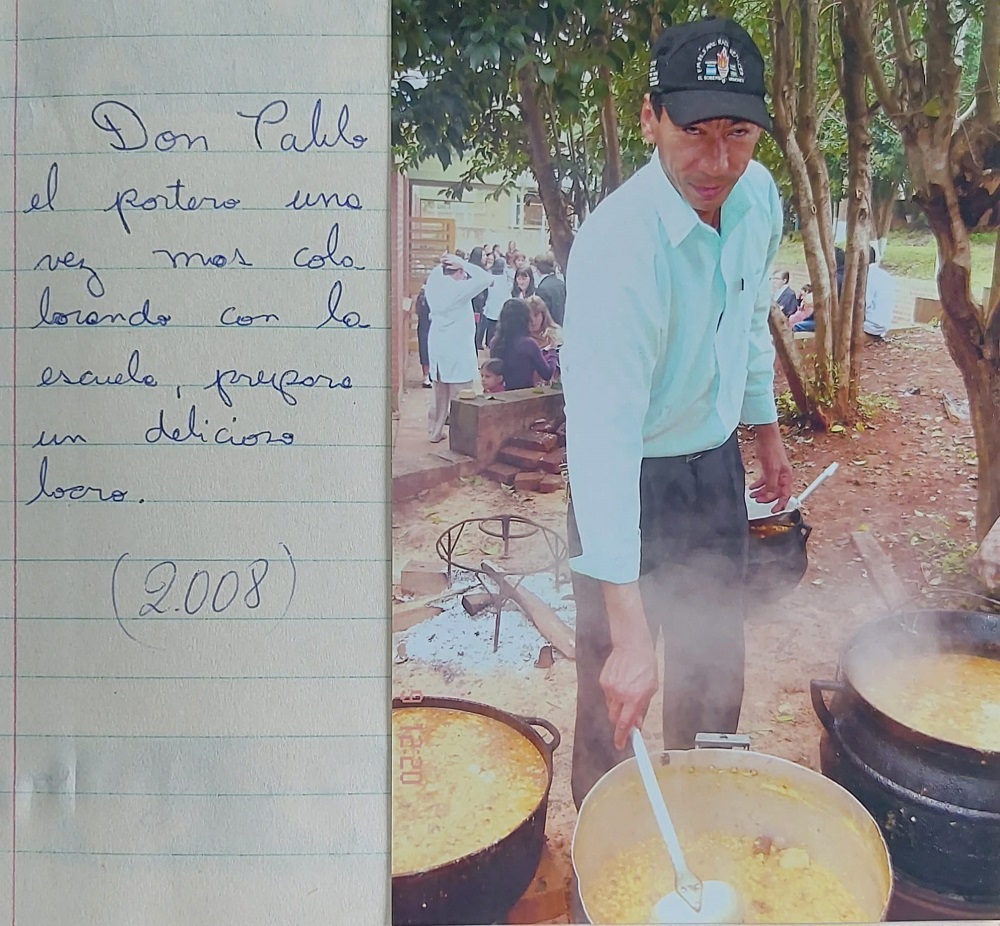 Don Pablo
el portero una
vez mas cola
borando con la
escuela, prepara
un delicioso
locro.
(2.008)
12:20